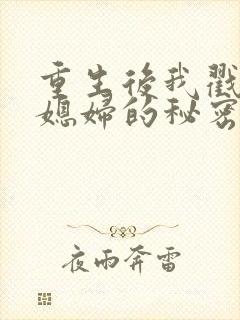 重生後我戳
媳婦的秘密
夜雨奔雷